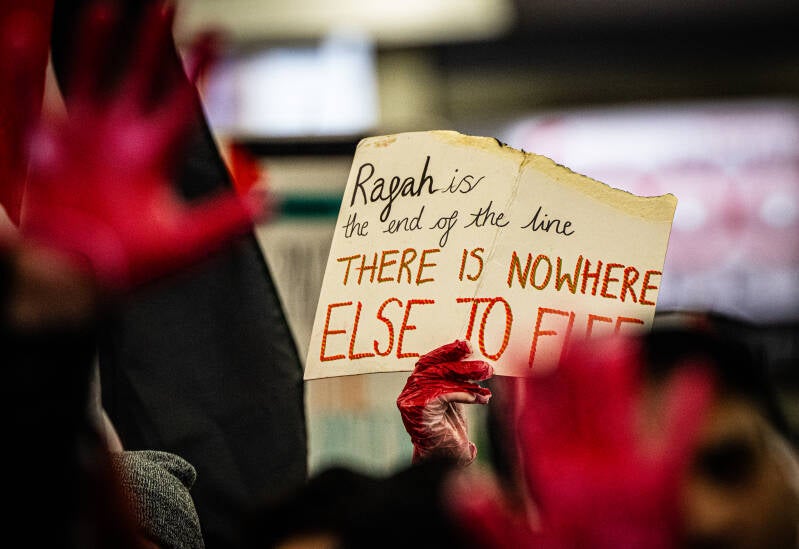 Rafah is
the end of the line
THERE IS NOWHERE
ELSE TO FLEE